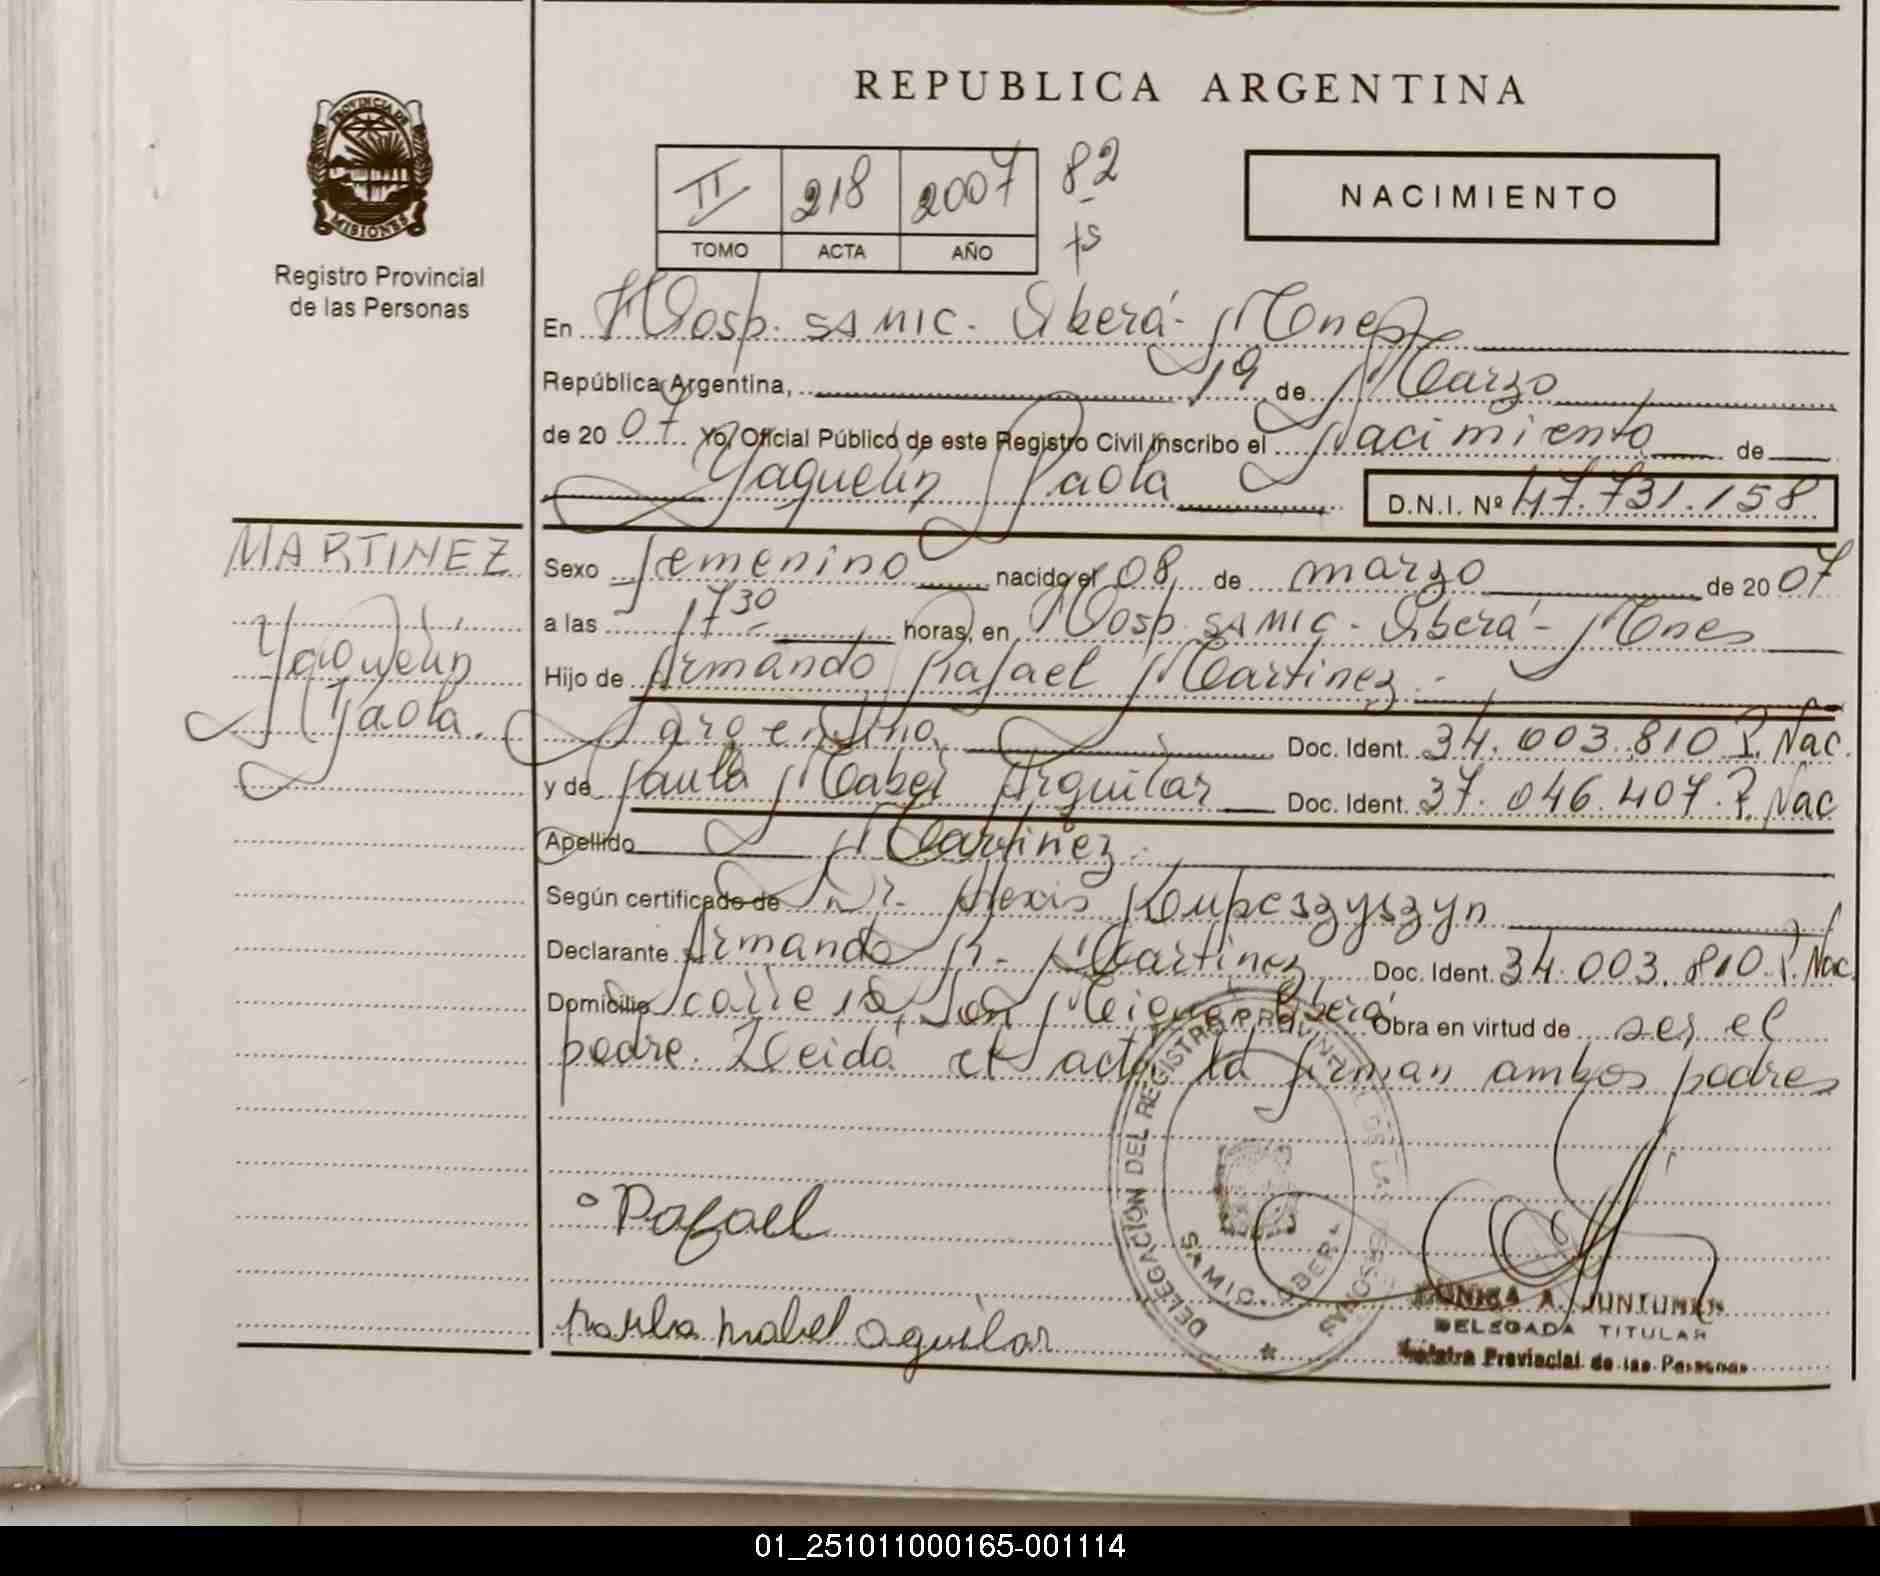 REPUBLICA ARGENTINA
PROVINCIA DE MISIONES
Registro Provincial
de las Personas
II 218 2007 82
TOMO ACTA AÑO
NACIMIENTO
En Hosp. SAMIC. Oberá - Mnes
República Argentina, 19 de Marzo
de 2007 Yo, Oficial Público de este Registro Civil inscribo el Nacimiento de
Yaquelin Paola D.N.I. Nº 47.731.158
MARTINEZ
Yaquelin
Paola.
Sexo Femenino nacido el 08 de marzo de 2007
a las 17 30 horas, en Hosp. SAMIC - Oberá - Mnes
Hijo de Armando Rafael Martinez.
Argentino Doc. Ident. 34.003.810 P. Nac.
y de Paula Mabel Arguilar Doc. Ident. 37.046.407. P. Nac
Apellido Martinez.
Según certificado de Dr. Alexis Koupeszyszyn
Declarante Armando R. Martinez Doc. Ident. 34.003.810. P. Nac.
Domicilio calle San Miguel Oberá Obra en virtud de ser el
padre. Leída el acta la firman ambos padres
Rafael
Paula Mabel aguilar
DELEGACION DEL REGISTRO PROVINCIAL DE LAS PERSONAS
SAMIC. OBERA
MISIONES
MONICA A. JUNTUNEN
DELEGADA TITULAR
Registro Provincial de las Personas
01_251011000165-001114